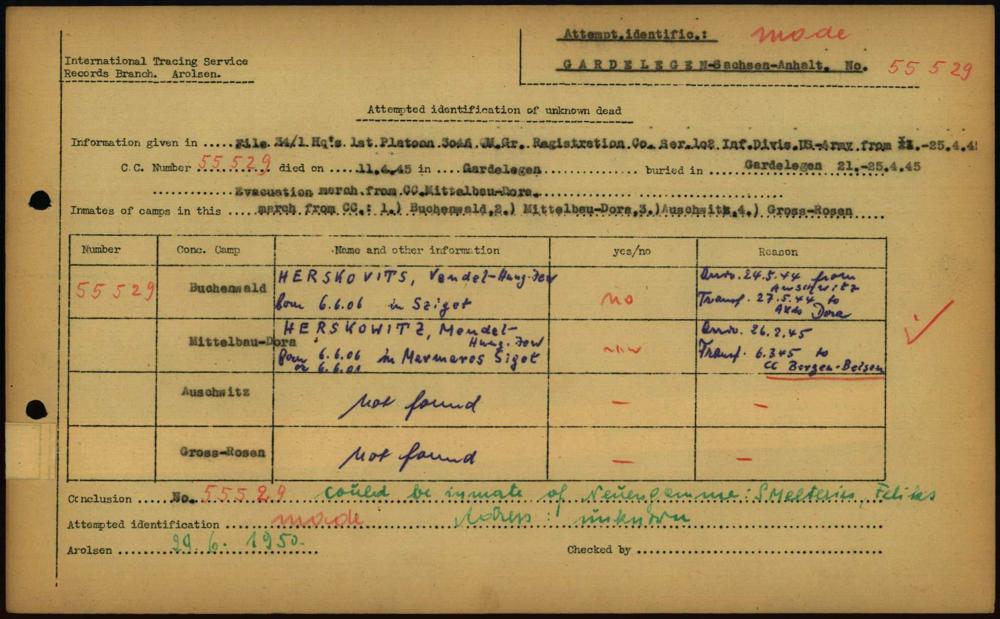 Attempt.identific.: made
International Tracing Service
Records Branch. Arolsen.
GARDELEGEN-Sachsen-Anhalt. No. 55 529
Attempted identification of unknown dead
Information given in ..... File 34/1 Hq's 1st Platoon 3046 QM.Gr. Registration Co. Ser.102 Inf.Divis.US-Army from 21.-25.4.45
C.C. Number 55 529 died on ..... 11.4.45 in ... Gardelegen buried in Gardelegen 21.-25.4.45
Evacuation march from CC.Mittelbau-Dora.
Inmates of camps in this .... march from CC.: 1.) Buchenwald,2.) Mittelbau-Dora,3.)Auschwitz,4.) Gross-Rosen
Number Conc. Camp Name and other information yes/no Reason
55 529 Buchenwald HERSKOVITS, Vendel-Hung.Jew no Arriv. 24.5.44 from
Auschwitz
born 6.6.06 in Sziget Transf. 27.5.44 to
Dora
Mittelbau-Dora HERSKOWITZ, Mendel- Arriv. 26.2.45
Hung. Jew
Born 6.6.06 in Marmaros Siget Transf. 6.3.45 to
or 6.6.01 CC Bergen-Belsen
Auschwitz not found – –
Gross-Rosen not found – –
Conclusion ..... No. 55529 could be inmate of Neuengamme: Feliks
Attempted identification made Adress: unknown
Arolsen 29. 6. 1950. Checked by